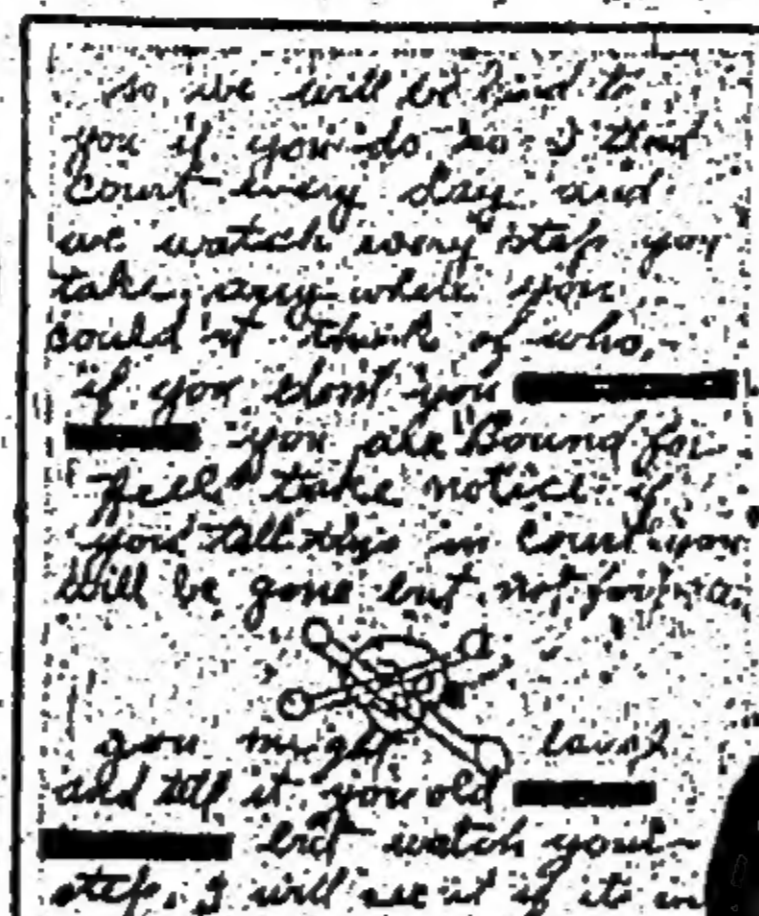 so we will be kind to
you if you do so I tend
Court every day and
we watch every step you
take any where you
could n't think of who,
if you dont you
you are Bound for
"Hell" take notice if
you tell this in Court you
will be gone but not
you might laugh
and tell it you old
but watch your
step, I will see it if its in